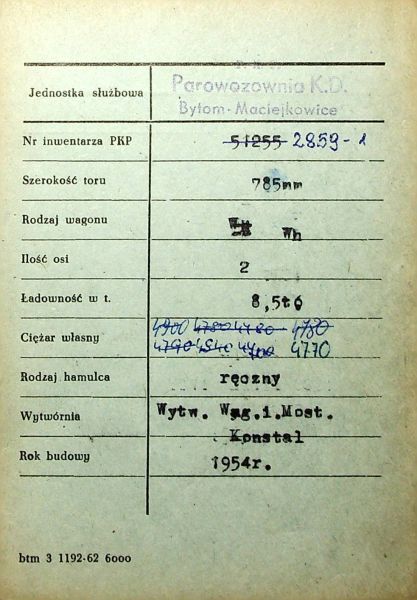 Jednostka służbowa
Parowozownia K.D.
Bytom-Maciejkowice
Nr inwentarza PKP 51255 2859-1
Szerokość toru 785mm
Rodzaj wagonu Wh
Ilość osi 2
Ładowność w t. 8,5t
Ciężar własny 4900 4780 4780 4780
4790 4770
Rodzaj hamulca ręczny
Wytwórnia Wytw. Wag.i.Most.
Konstal
Rok budowy 1954r.
btm 3 1192-62 6000